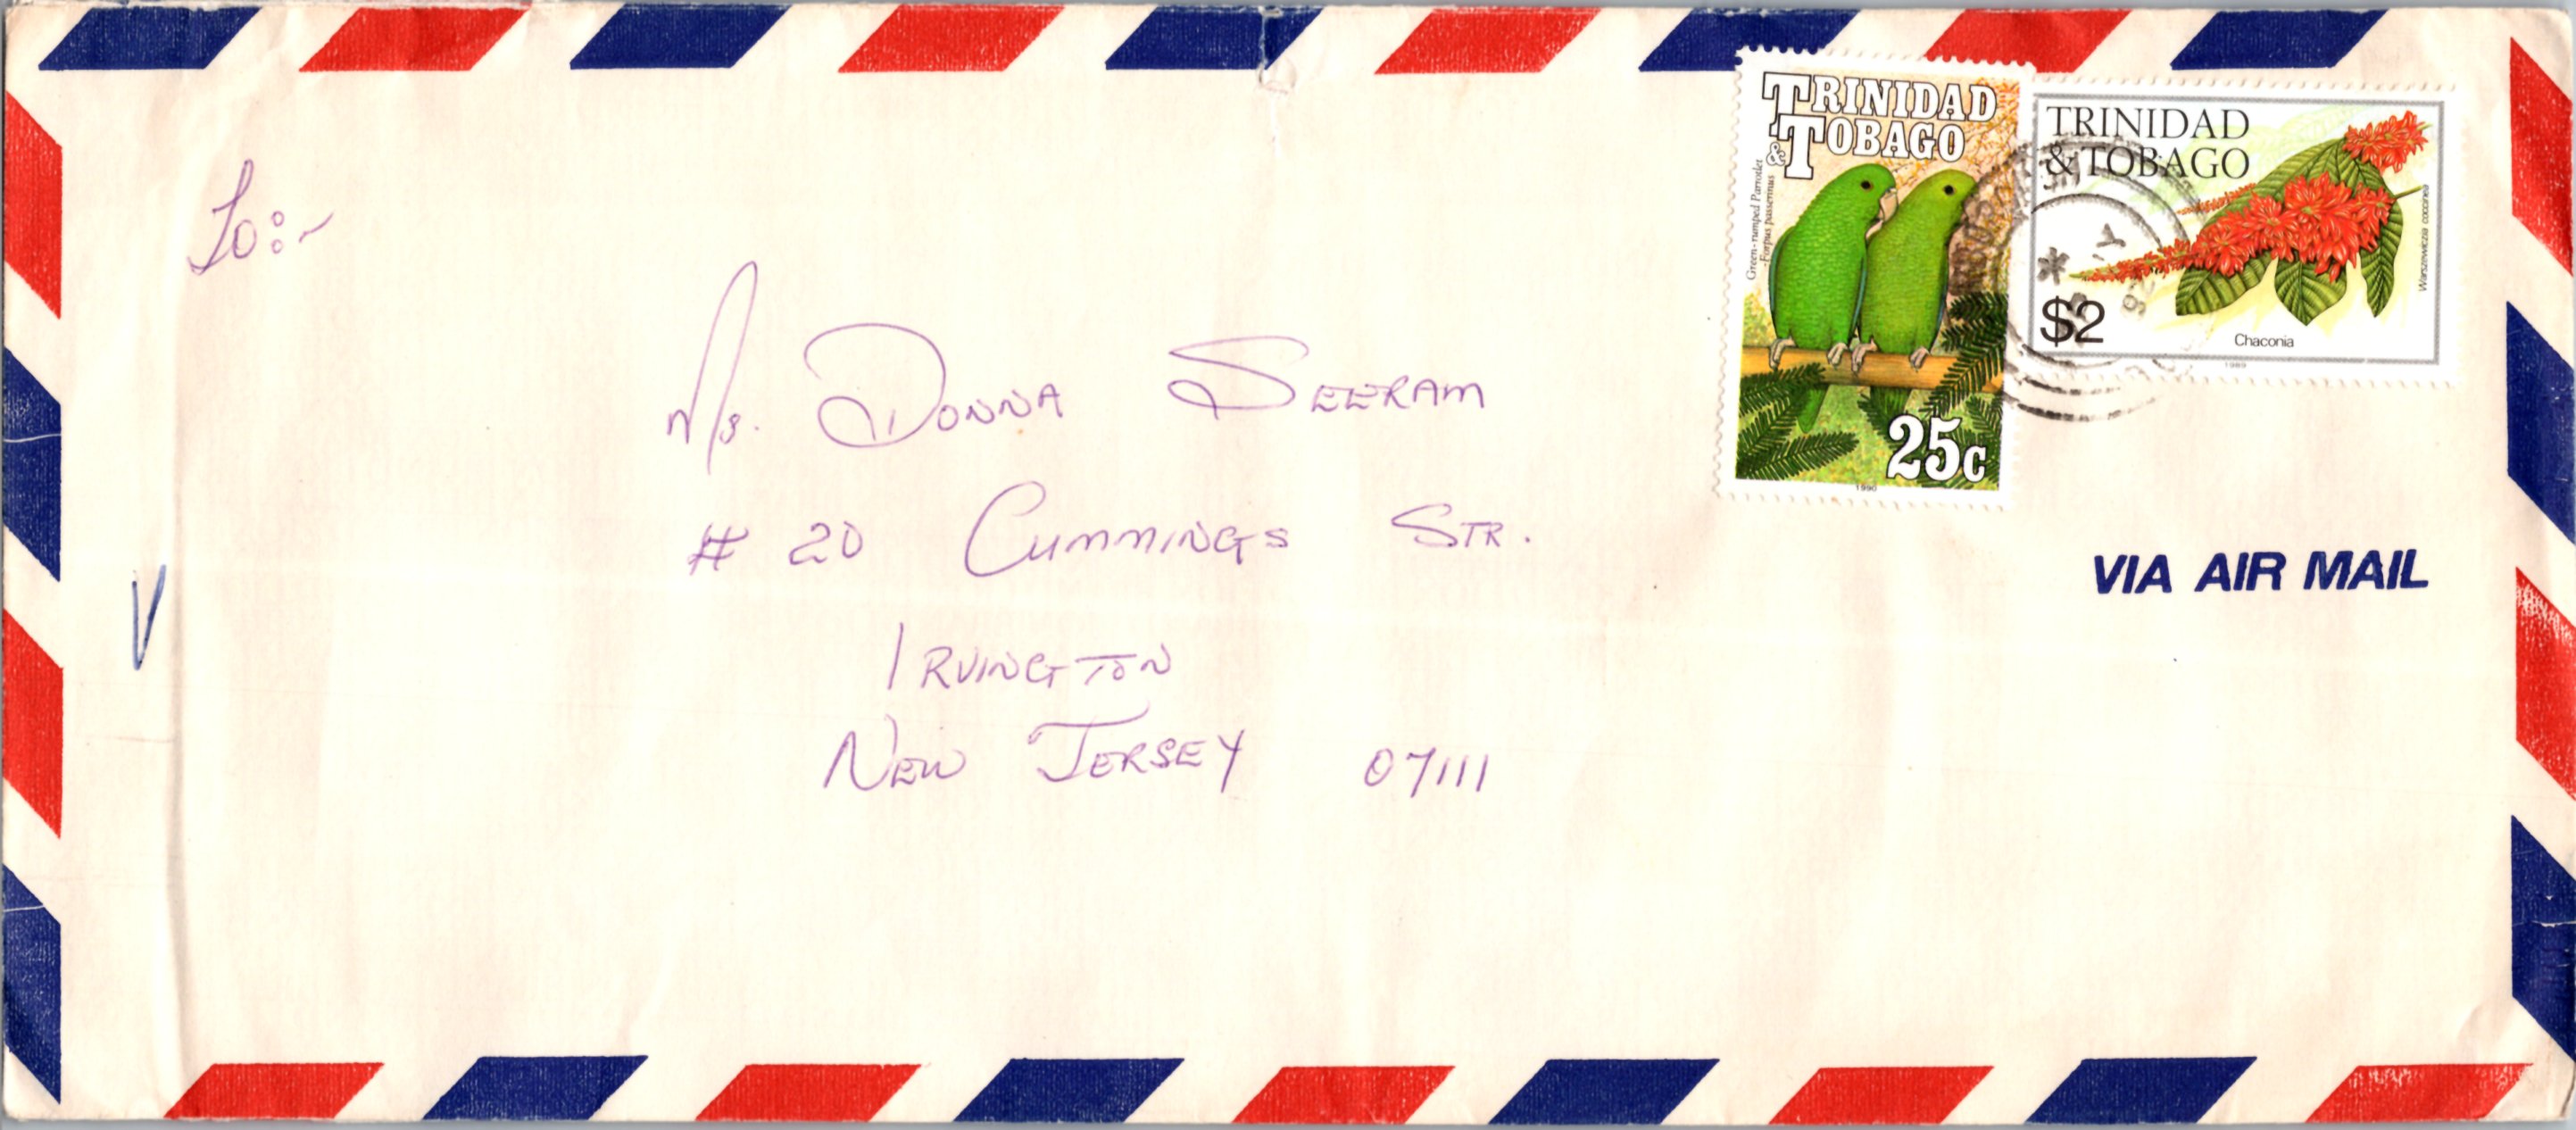 To:-
Ms. DONNA SEERAM
# 20 CUMMINGS STR.
IRVINGTON
NEW JERSEY 07111
TRINIDAD
& TOBAGO
Green-rumped Parrotlet
-Forpus passerinus
25c
1990
TRINIDAD
& TOBAGO
$2
Chaconia
Warszewiczia coccinea
1989
VIA AIR MAIL